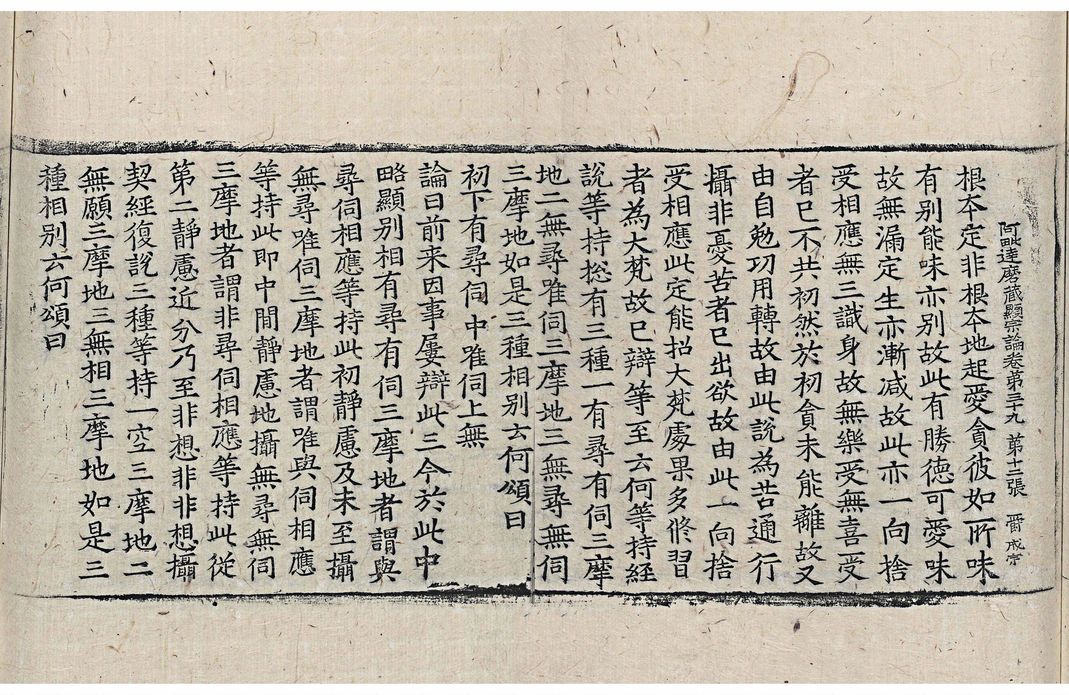 阿毗達磨藏顯宗論卷第三十九 第十二張 戒亨
根本定非根本地起愛貪彼如所味
有別能味亦別故此有勝德可愛味
故無漏定生亦漸减故此亦一向捨
受相應無三識身故無樂受無喜受
者已不共初然於初貪未能離故又
由自勉功用轉故由此說為苦通行
攝非憂苦者已出欲故由此一向捨
受相應此定能招大梵處果多修習
者為大梵故已辯等至云何等持經
說等持捴有三種一有尋有伺三摩
地二無尋唯伺三摩地三無尋無伺
三摩地如是三種相別云何頌曰
初下有尋伺中唯伺上無
論曰前来因事屢辯此三今於此中
略顯別相有尋有伺三摩地者謂與
尋伺相應等持此初靜慮及未至攝
無尋唯伺三摩地者謂唯與伺相應
等持此即中間靜慮地攝無尋無伺
三摩地者謂非尋伺相應等持此従
第二靜慮近分乃至非想非非想攝
契經復說三種等持一空三摩地二
無願三摩地三無相三摩地如是三
種相別云何頌曰